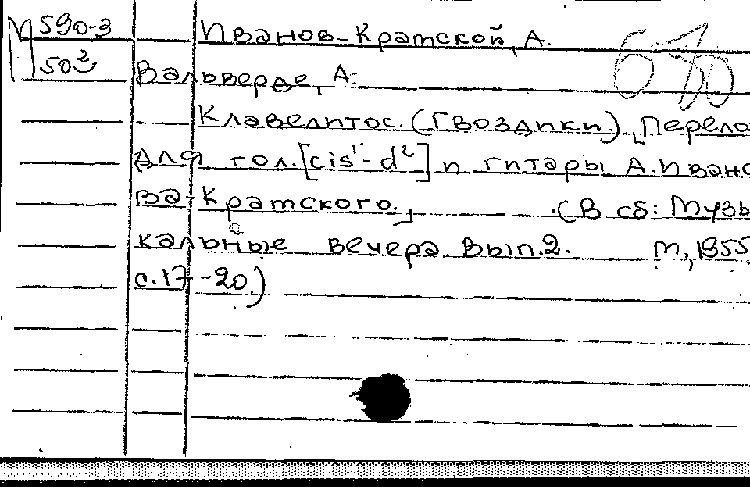 М 590-3 Иванов-Крамской, А.
50²
Вальверде, А.
Клавелитос. (Гвоздики) [Перело
для гол. [cis¹-d²] и гитары А. Ивано
ва-Крамского.] (В сб: Музы
кальные вечера. Вып. 2. М., 1955
с. 17-20)